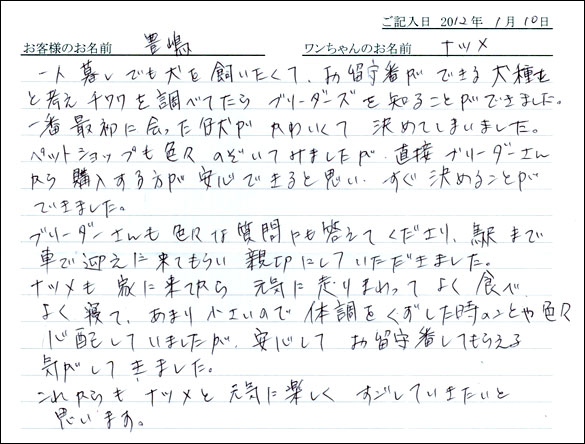 ご記入日 2012年 1月 10日
お客様のお名前 豊嶋 ワンちゃんのお名前 ナツメ
一人暮しでも犬を飼いたくて、お留守番ができる犬種を
と考えチワワを調べてたらブリーダーズを知ることができました。
一番最初に会った仔犬がかわいくて決めてしまいました。
ペットショップも色々のぞいてみましたが、直接ブリーダーさん
から購入する方が安心できると思い、すぐ決めることが
できました。
ブリーダーさんも色々な質問にも答えてくださり、駅まで
車で迎えに来てもらい親切にしていただきました。
ナツメも家に来てから元気に走りまわってよく食べ
よく寝て、あまり小さいので体調をくずした時のことや色々
心配していましたが、安心してお留守番してもらえる
気がしてきました。
これからもナツメと元気に楽しくすごしていきたいと
思います。